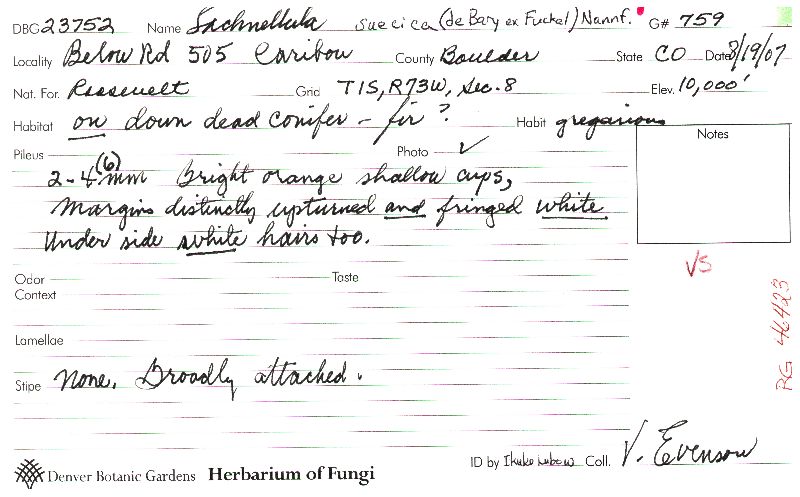 DBG 23752 Name Lachnellula suecica (de Bary ex Fuckel) Nannf. G# 759
Locality Below Rd 505 Caribou County Boulder State CO Date 8/19/07
Nat. For. Roosevelt Grid T1S, R73W, Sec. 8 Elev. 10,000'
Habitat on down dead conifer - fir? Habit gregarious
Notes
Pileus Photo ✓
2-4 (6) mm Bright orange shallow cups,
Margins distinctly upturned and fringed white.
Under side white hairs too.
VS
Odor Taste
Context
RG 46423
Lamellae
Stipe None. Broadly attached.
Denver Botanic Gardens Herbarium of Fungi
ID by Coll. V. Evenson